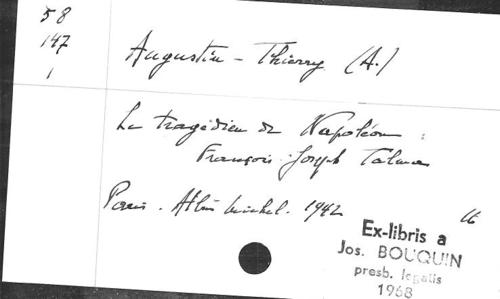 58
147
1
Augustin-Thierry (A.)
Le tragédien de Napoléon :
François-Joseph Talma
Paris. Albin Michel. 1942
Ex-libris a
Jos. BOUQUIN
presb. legatis
1968